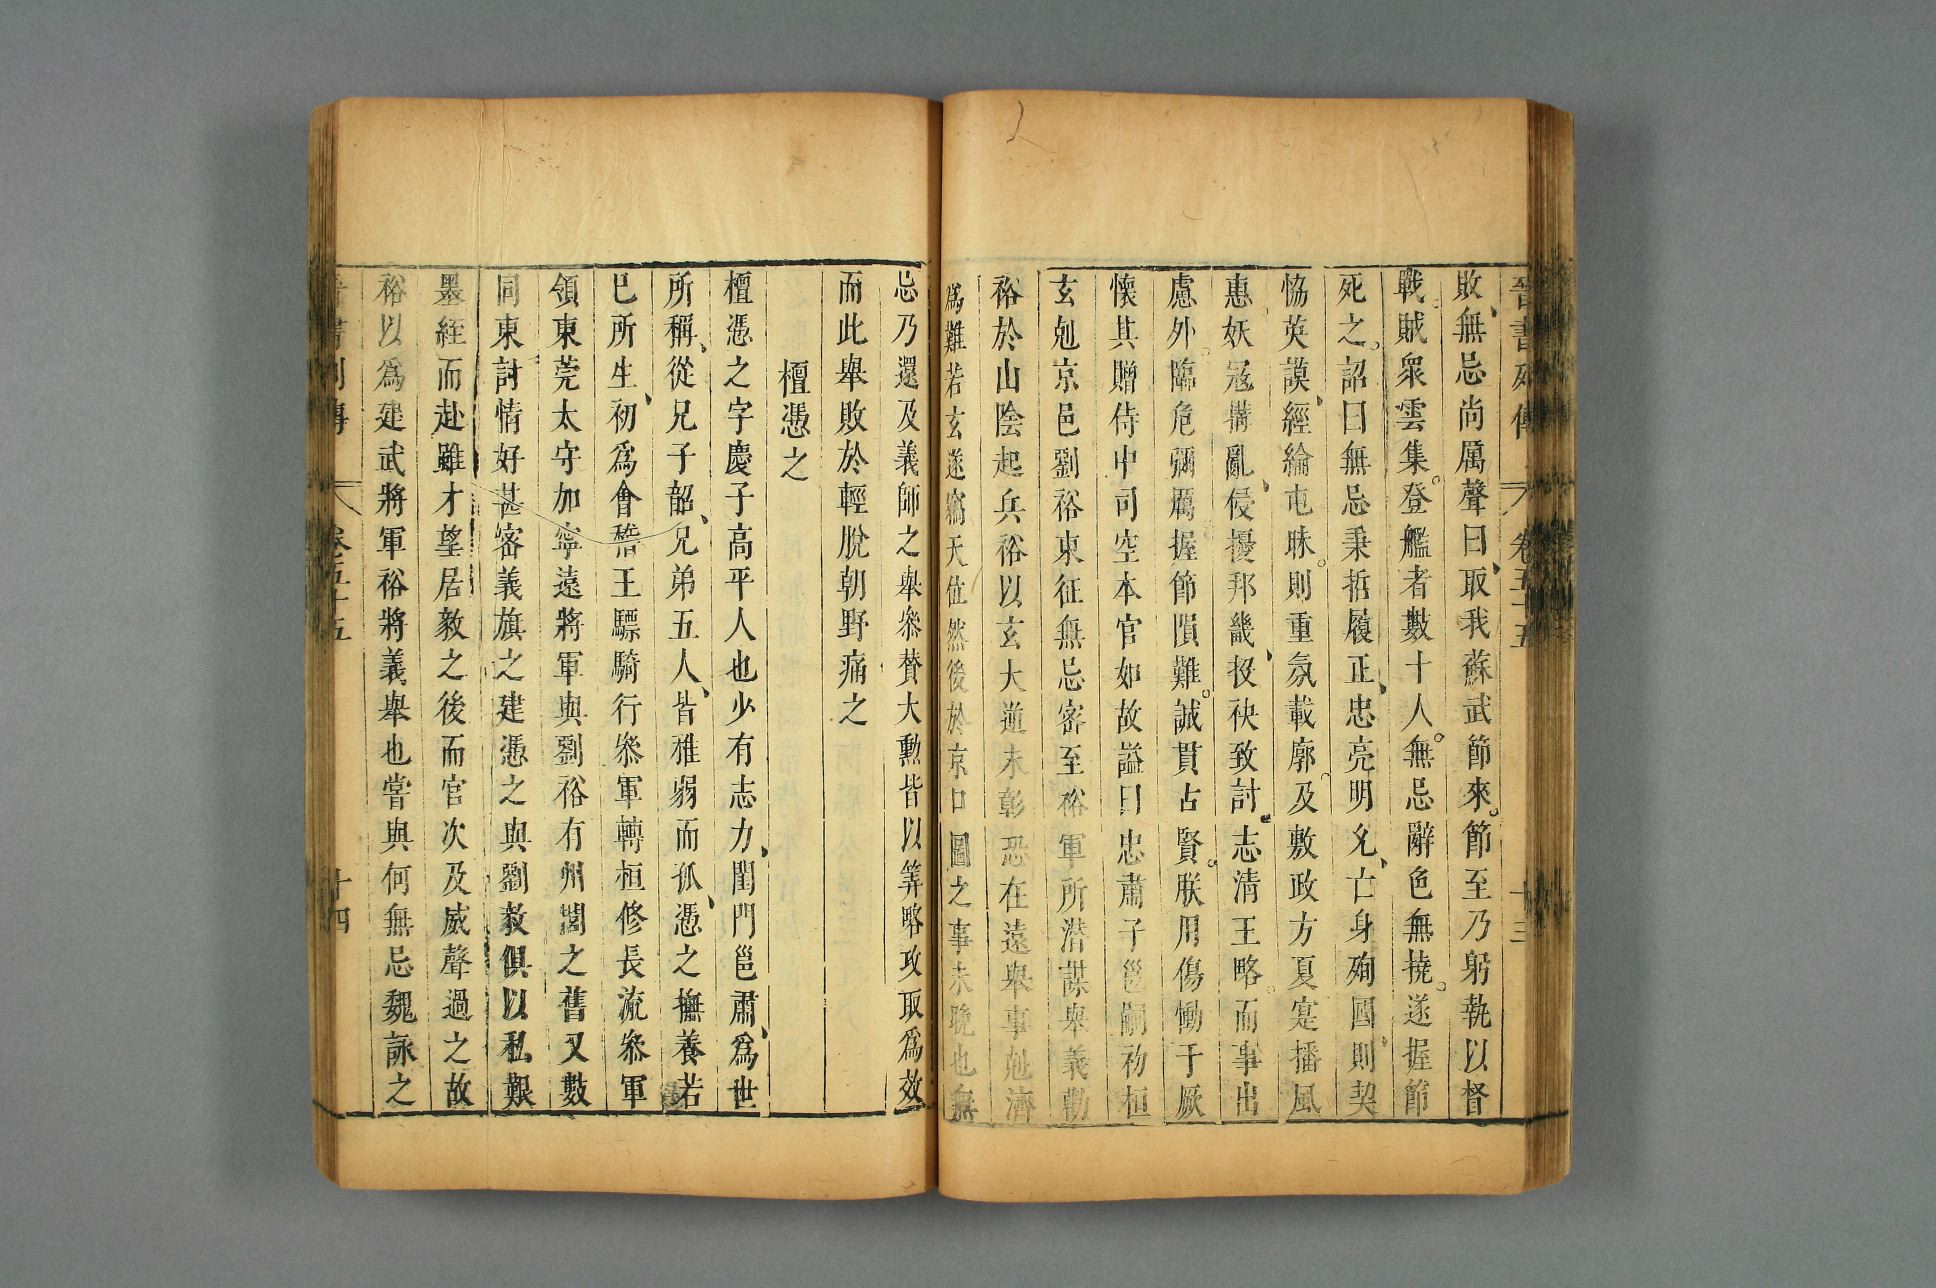 晉書列傳 卷五十五 十三
敗無忌尚厲聲曰取我蘇武節來節至乃躬執以督
戰賊衆雲集登艦者數十人無忌辭色無撓遂握節
死之詔曰無忌秉哲履正忠亮明允亡身殉國則契
恊英謨經綸屯昧則重氛載廓及敷政方夏寔播風
惠妖冦搆亂侵擾邦畿投袂致討志清王略而事出
慮外臨危彌厲握節隕難誠貫古賢朕用傷慟于厥
懷其贈侍中司空本官如故諡曰忠肅子邕嗣初桓
玄剋京邑劉裕東征無忌密至裕軍所潛謀舉義勸
裕於山陰起兵裕以玄大逆未彰恐在遠舉事剋濟
爲難若玄遂竊天位然後於京口圖之事未晚也無
忌乃還及義師之舉叅賛大勳皆以筭略攻取爲效
而此舉敗於輕脫朝野痛之
檀憑之
檀憑之字慶子高平人也少有志力閨門邕肅爲世
所稱從兄子韶兄弟五人皆稚弱而孤憑之撫養若
已所生初爲會稽王驃騎行叅軍轉桓修長流叅軍
領東莞太守加寧遠將軍與劉裕有州閭之舊又數
同東討情好甚密義旗之建憑之與劉毅俱以私艱
墨絰而赴雖才望居毅之後而官次及威聲過之故
裕以爲建武將軍裕將義舉也嘗與何無忌魏詠之
晉書列傳 卷五十五 十四